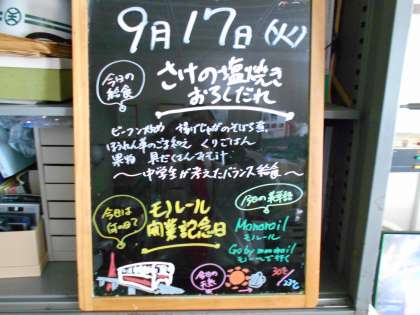 9月17日(火)
今日の
給食
さけの塩焼き
おろしだれ
ビーフン炒め 揚げじゃがのそぼろ煮
ほうれん草のごま和え くりごはん
果物 具だくさんみそ汁
〜中学生が考えたバランス給食〜
今日は
何の日?
モノレール
開業記念日
今日の英語
Monorail
モノレール
Go by monorail
モノレールで行く
今日の
天気
30℃
23℃